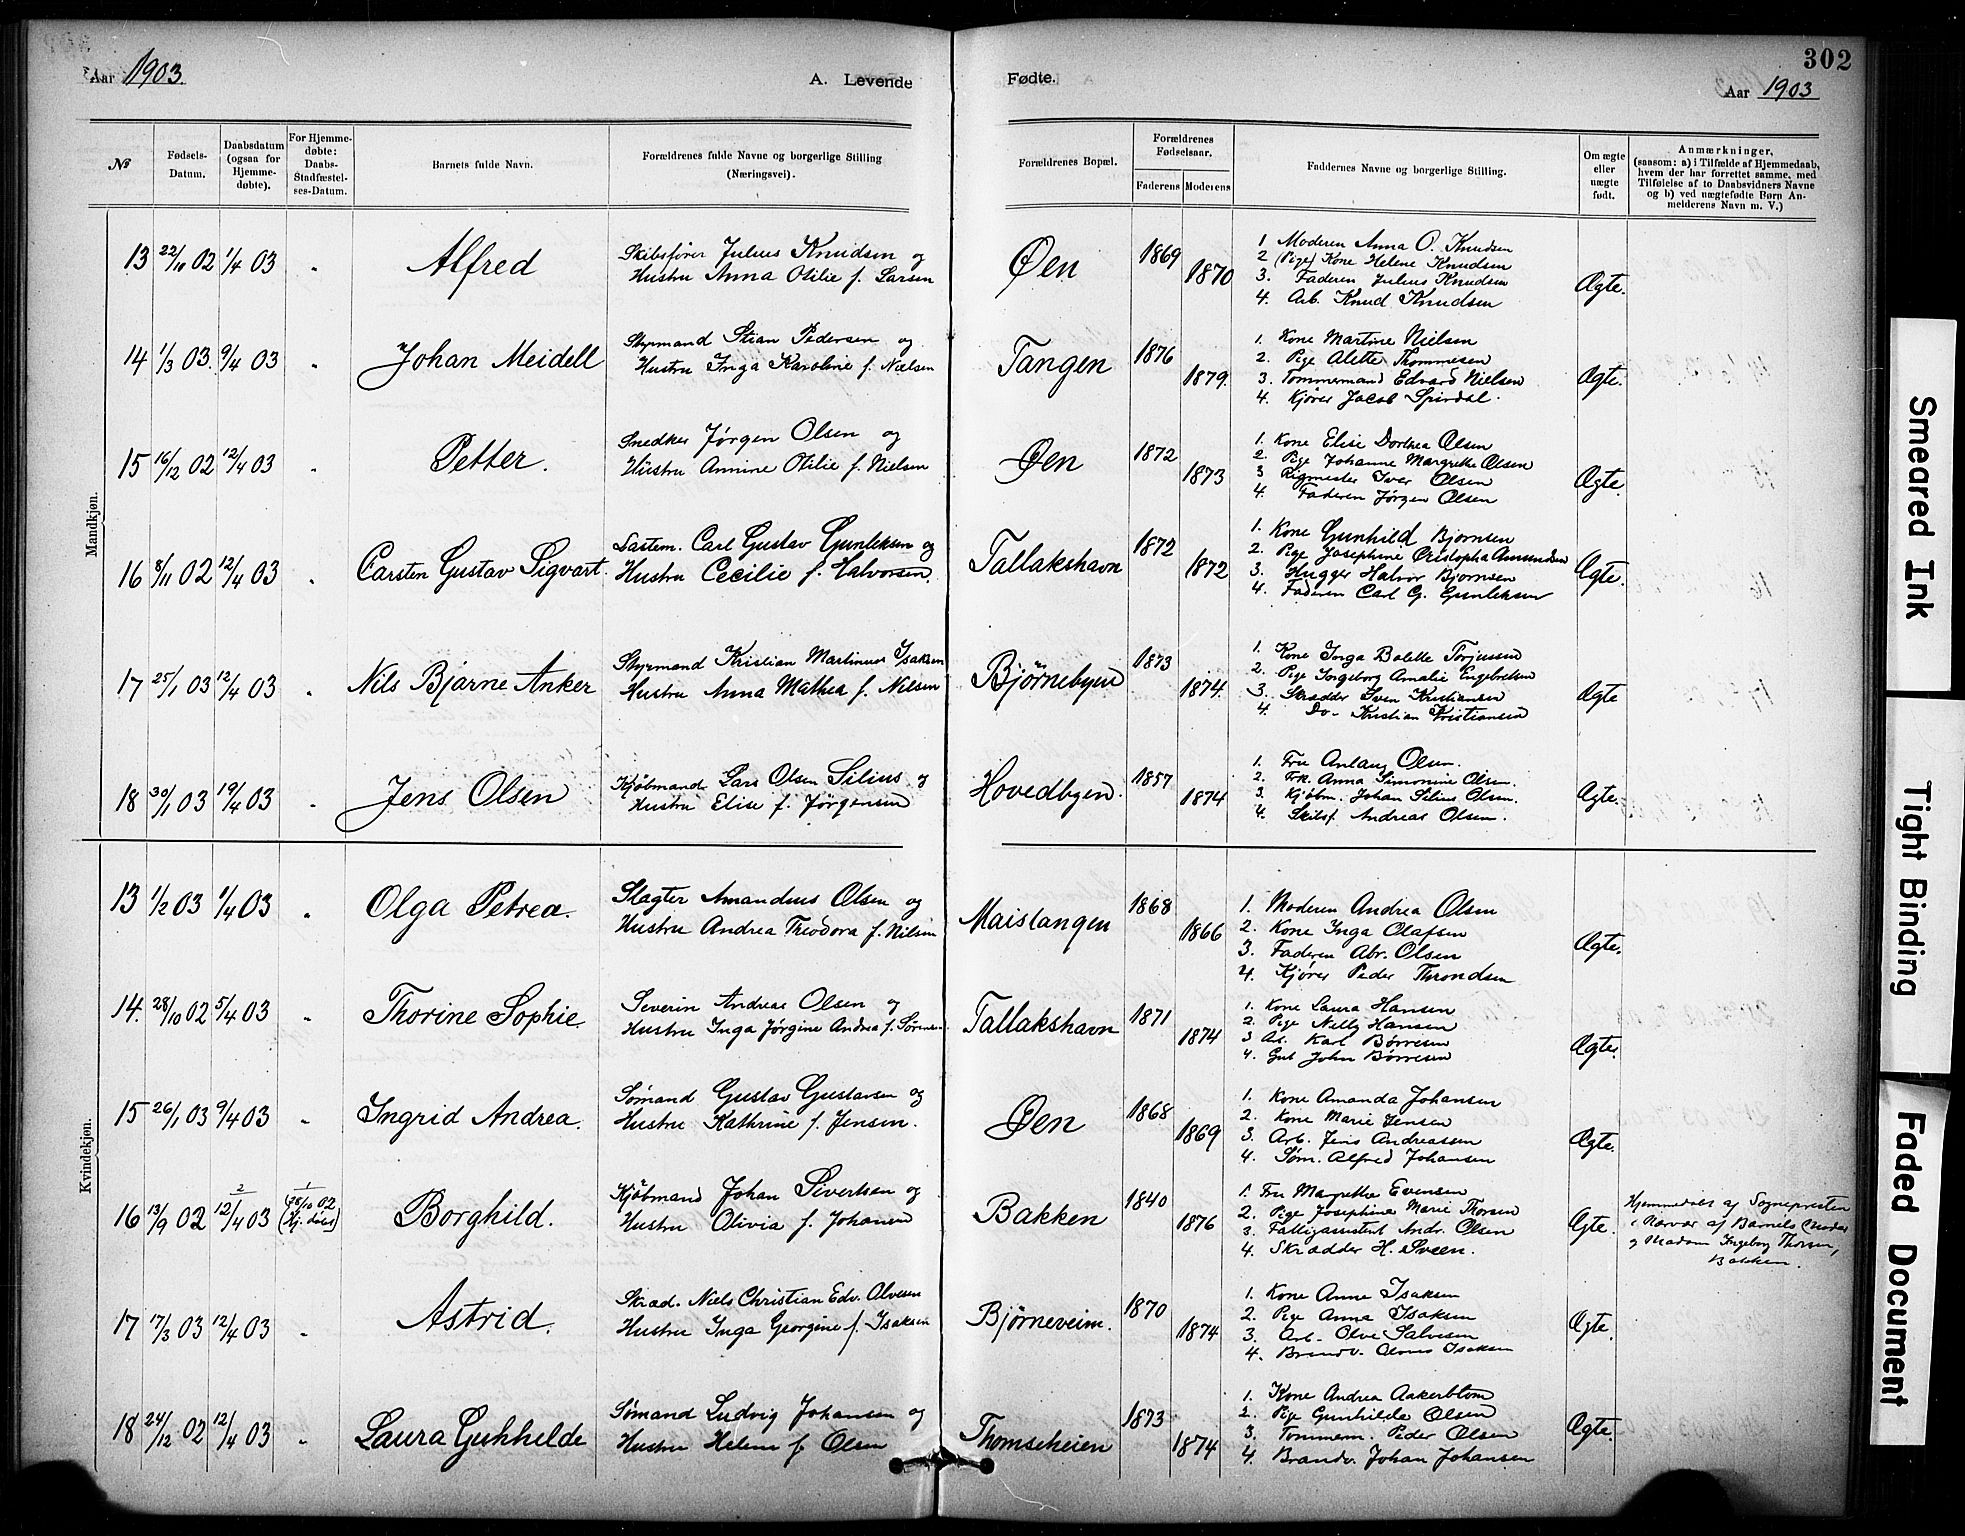 302
Aar 1903. A. Levende Fødte. Aar 1903
№
Fødsels-Datum.
Daabsdatum (ogsaa for Hjemmedøbte).
For Hjemmedøbte: Daabs-Stadfæstelses-Datum.
Barnets fulde Navn.
Forældrenes fulde Navne og borgerlige Stilling (Næringsvei).
Forældrenes Bopæl.
Forældrenes Fødselsaar.
Faderens Moderens
Faddernes Navne og borgerlige Stilling.
Om ægte eller uægte født.
Anmærkninger,
(saasom: a) i Tilfælde af Hjemmedaab,
hvem der har forrettet samme, med
Tilføielse af to Daabsvidners Navne
og b) ved uægtefødte Børn Anmelderens Navn m. V.)
Mandkjøn.
13 22/10 02 1/4 03 " Alfred
Skibsfører Julius Knudsen og
Hustru Anna Otilie f. Larsen
Øen 1869 1870
1 Moderen Anna O. Knudsen
2 (Pige) Kone Helene Knudsen
3. Faderen Julius Knudsen
4. Arb. Knud Knudsen
Ægte.
14 1/3 03. 9/4 03 " Johan Meidell
Styrmand Stian Pedersen og
Hustru Inga Karoline f. Nielsen
Tangen 1876 1879.
1. Kone Martine Nielsen
2. Pige Alette Thommesen
3. Tømmermand Edvard Nielsen
4. Kjører Jacob Spirdal.
Ægte.
15 16/12 02 12/4 03 " Petter.
Snedker Jørgen Olsen og
Hustru Annine Otilie f. Nielsen
Øen 1872 1873
1. Kone Elise Dorthea Olsen
2. Pige Johanne Margrethe Olsen
3 Rigmester Iver Olsen
4. Faderen Jørgen Olsen
Ægte.
16 8/11 02 12/4 03 " Carsten Gustav Sigvart.
Lastem. Carl Gustav Gunleksen og
Hustru Cecilie f. Halvorsen.
Tallakshavn 1872 1872
1. Kone Gunhild Bjørnsen
2. Pige Josephine Cristopha Amundsen
3. Hugger Halvor Bjørnsen
4. Faderen Carl G. Gunleksen
Ægte.
17 25/1 03 12/4 03 " Nils Bjarne Anker
Styrmand Kristian Martinus Isaksen
Hustru Anna Mathea f. Nilsen
Bjørnebyen 1873 1874.
1. Kone Inga Bolette Torjussen
2. Pige Ingeborg Amalie Engebretsen
3. Skrædder Sven Kristiansen
4. Do- Kristian Kristiansen
Ægte
18 30/1 03 19/4 03 " Jens Olsen
Kjøbmand Lars Olsen Silius og
Hustru Elise f. Jørgensen
Hovedbyen. 1857 1874
1. Fru Anlaug Olsen.
2. Frk. Anna Simonine Olsen.
3. Kjøbm. Johan Silius Olsen.
4. Skibsf. Andreas Olsen.
Ægte.
Kvindekjøn.
13 1/2 03 1/4 03 " Olga Petrea.
Slagter Amandus Olsen og
Hustru Andrea Theodora f. Nilsen
Maistangen 1868 1866
1. Moderen Andrea Olsen
2. Kone Inga Olafsen
3. Faderen Abr. Olsen
4. Kjører Peder Throndsen
Ægte.
14. 28/10 02 5/4 03 " Thorine Sophie.
Severin Andreas Olsen og
Hustru Inga Jørgine Andrea f. Sørensen
Tallakshavn 1871 1874
1. Kone Laura Hansen
2. Pige Nelly Hansen
3 Arb. Karl Børresen
4. Gut John Børresen
Ægte.
15 26/1 03 9/4 03 " Ingrid Andrea.
Sømand Gustav Gustavsen og
Hustru Kathrine f. Jensen.
Øen 1868 1869
1. Kone Amanda Johansen
2. Kone Marie Jensen
3. Arb. Jens Andreassen
4. Søm. Alfred Johansen
Ægte.
16 13/9 02 2 12/4 03 1 28/10 02 (Hj. døbt) Borghild.
Kjøbmand Johan Sivertsen og
Hustru Olivia f. Johansen
Bakken 1840 1876
1. Fru Margrethe Evensen
2. Pige Josephine Marie Thorsen
3. Fattigassistent Andr. Olsen
4. Skrædder H. Sveen.
Ægte.
Hjemmedøbt af Sognepresten
i Nærvær af Barnets Moder
og Madam Ingeborg Thorsen,
Bakken.
17 17/3 03 12/4 03 " Astrid.
Skræd. Niels Christian Edv. Olvesen
Hustru Inga Georgine f. Isaksen
Bjørneveim. 1870 1874
1. Kone Anne Isaksen
2. Pige Anna Isaksen
3. Arb. Olve Salvesen
4. Brandv. Isaksen
Ægte.
18 24/12 02 12/4 03 " Laura Gukhilde
Sømand Ludvig Johansen og
Hustru Helene f. Olsen
Thomseheien 1873 1874
1. Kone Andrea Aakerblom
2. Pige Gunhilde Olsen
3. Tømmerm. Peder Olsen
4. Brandv. Johan Johansen
Ægte.
Smeared Ink
Tight Binding
Faded Document